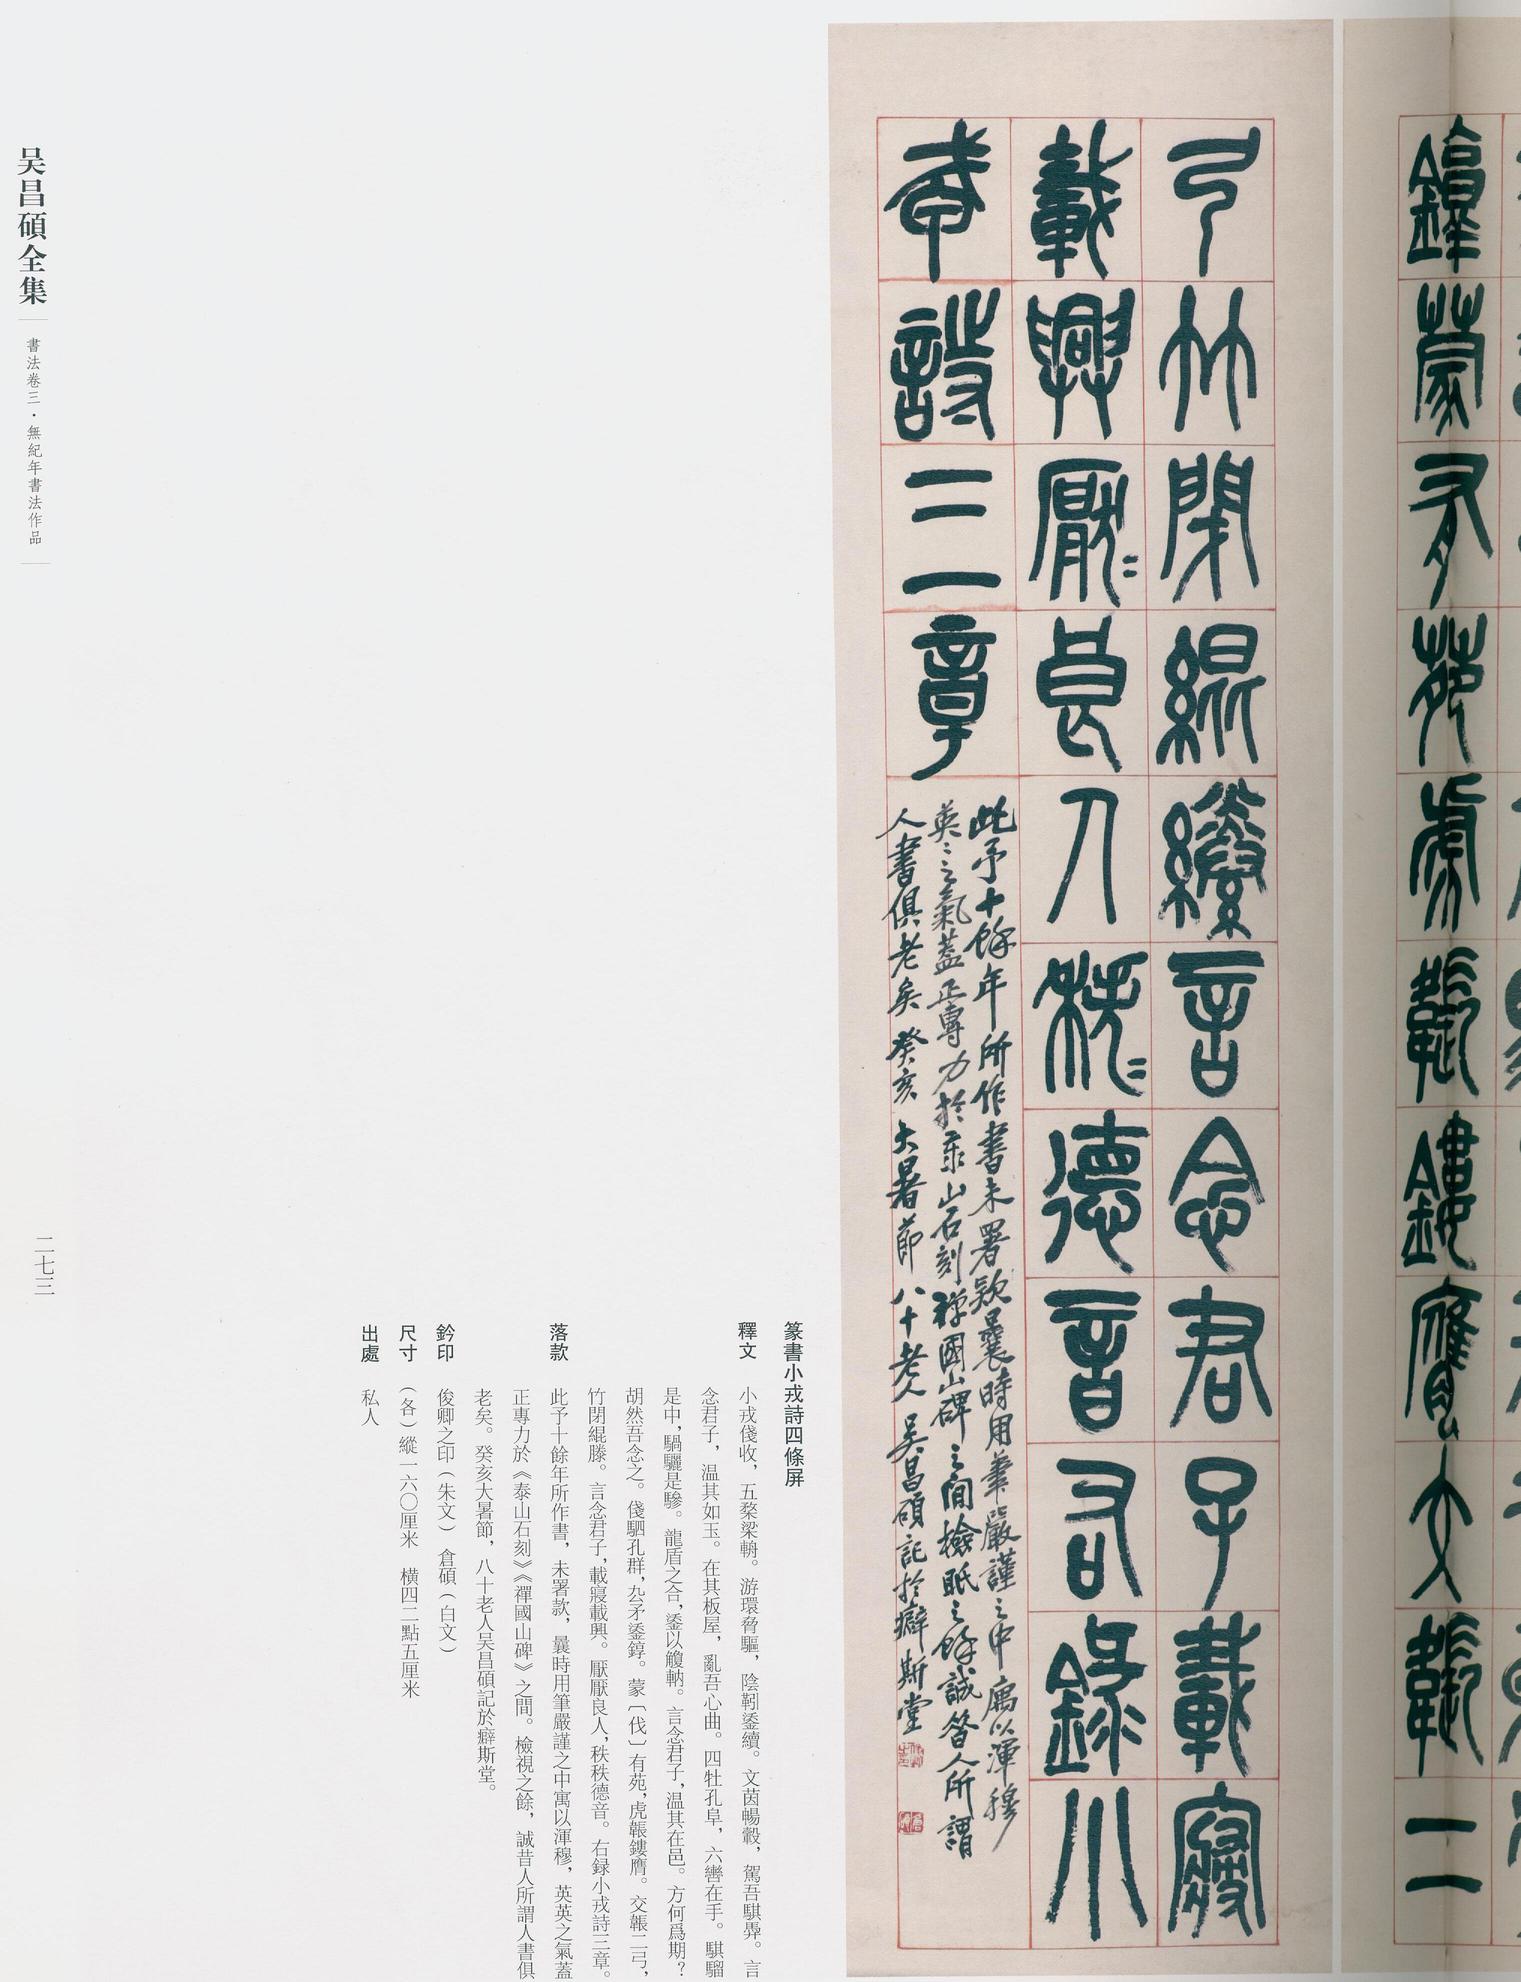 錞蒙有苑虎韔鏤膺交韔二
弓竹閉緄縢言念君子載寢
載興厭〻良人秩〻德音右錄小
戎詩三章
此予十餘年所作書未署款曩時用筆嚴謹之中寓以渾穆
英〻之氣蓋正專力於泰山石刻禪國山碑之間檢眂之餘誠昔人所謂
人書俱老矣癸亥大暑節八十老人吳昌碩記於癖斯堂
篆書小戎詩四條屏
釋文 小戎俴收,五楘梁輈。游環脅驅,陰靷鋈續。文茵暢轂,駕吾騏馵。言
念君子,温其如玉。在其板屋,亂吾心曲。四牡孔阜,六轡在手。騏騮
是中,騧驪是驂。龍盾之合,鋈以觼軜。言念君子,温其在邑。方何爲期?
胡然吾念之。俴駟孔群,厹矛鋈錞。蒙〔伐〕有苑,虎韔鏤膺。交韔二弓,
竹閉緄縢。言念君子,載寢載興。厭厭良人,秩秩德音。右録小戎詩三章。
落款 此予十餘年所作書,未署款,曩時用筆嚴謹之中寓以渾穆,英英之氣蓋
正專力於《泰山石刻》《禪國山碑》之間。檢視之餘,誠昔人所謂人書俱
老矣。癸亥大暑節,八十老人吴昌碩記於癖斯堂。
鈐印 俊卿之印(朱文) 倉碩(白文)
尺寸 (各)縱一六〇厘米 橫四二點五厘米
出處 私人
吴昌碩全集
書法卷三·無紀年書法作品
二七三